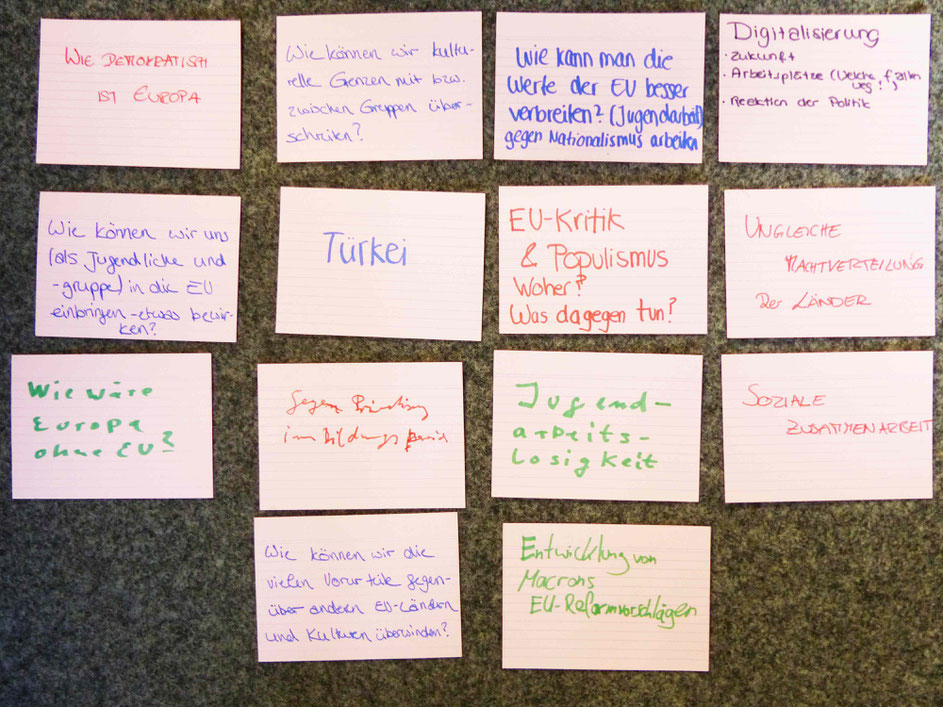 WIE DEMOKRATISCH
IST EUROPA
Wie können wir kultu-
relle Grenzen mit bzw.
zwischen Gruppen über-
schreiten?
Wie kann man die
Werte der EU besser
verbreiten? (Jugendarbeit)
gegen Nationalismus arbeiten
Digitalisierung
· Zukunft
· Arbeitsplätze (Welche fallen
weg?)
· Reaktion der Politik
Wie können wir uns
(als Jugendliche und
-gruppe) in die EU
einbringen - etwas bewir-
ken?
Türkei
EU-Kritik
& Populismus
Woher?
Was dagegen tun?
UNGLEICHE
MACHTVERTEILUNG
DER LÄNDER
Wie wäre
Europa
ohne EU?
im Bildungs
Jugend-
arbeits-
losigkeit
SOZIALE
ZUSAMMENARBEIT
Wie können wir die
vielen Vorurteile gegen-
über andern EU-Ländern
und Kulturen überwinden?
Entwicklung von
Macrons
EU-Reformvorschlägen